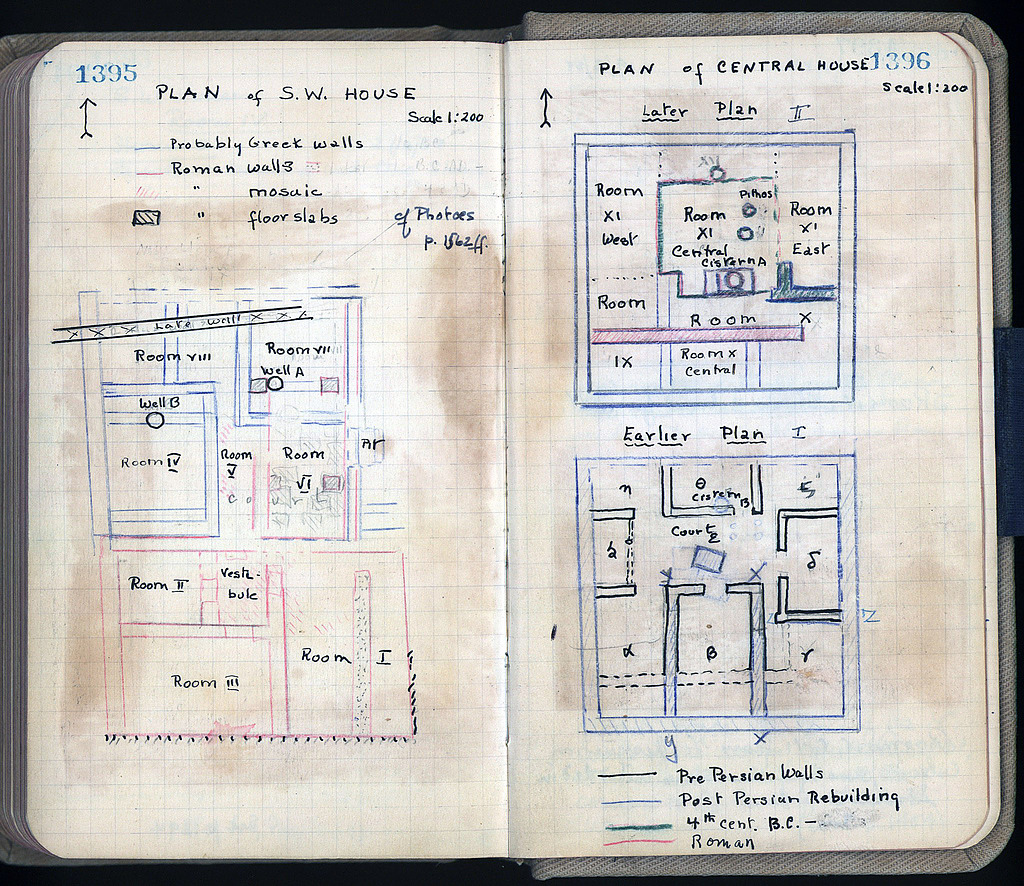 1395
PLAN of S.W. HOUSE
Scale 1:200
Probably Greek walls
Roman walls
" mosaic
" floor slabs
cf Photoes
p. 1562ff.
Late wall
Room VIII
Room VII
Well A
Well B
Room IV
Room
V
C
Room
VI
Ar
Room II
Vesti-
bule
Room III
Room I
1396
PLAN of CENTRAL HOUSE
Scale 1:200
Later Plan II
XVI
Room
XI
West
Pithos
Room
XI
Central
Cistern A
Room
XI
East
Room
Room X
IX
Room X
Central
Earlier Plan I
η
θ
Cistern B
ζ
Court ε
δ
X X
Z
α
β
γ
y
X
Pre Persian Walls
Post Persian Rebuilding
4th cent. B.C. –
Roman